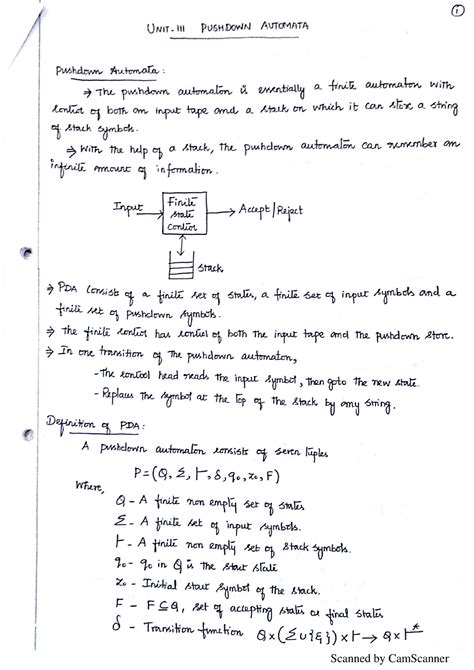 ①
UNIT-III PUSHDOWN AUTOMATA
Pushdown Automata :
→ The pushdown automaton is essentially a finite automaton with
control of both an input tape and a stack on which it can store a string
of stack symbols.
→ With the help of a stack, the pushdown automaton can remember an
infinite amount of information.
Input → Finite state control → Accept/Reject
Stack
→ PDA consists of a finite set of states, a finite set of input symbols and a
finite set of pushdown symbols.
→ The finite control has control of both the input tape and the pushdown store.
→ In one transition of the pushdown automaton,
- The control head reads the input symbol, then goto the new state.
- Replaces the symbol at the top of the stack by any string.
Definition of PDA:
A pushdown automaton consists of seven tuples
P = (Q, Σ, Γ, δ, q₀, z₀, F)
Where,
Q - A finite non empty set of states
Σ - A finite set of input symbols.
Γ - A finite non empty set of stack symbols.
q₀ - q₀ in Q is the start state
z₀ - Initial start symbol of the stack.
F - F ⊆ Q, set of accepting states or final states
δ - Transition function Q × (Σ ∪ {ε}) × Γ → Q × Γ*
Scanned by CamScanner